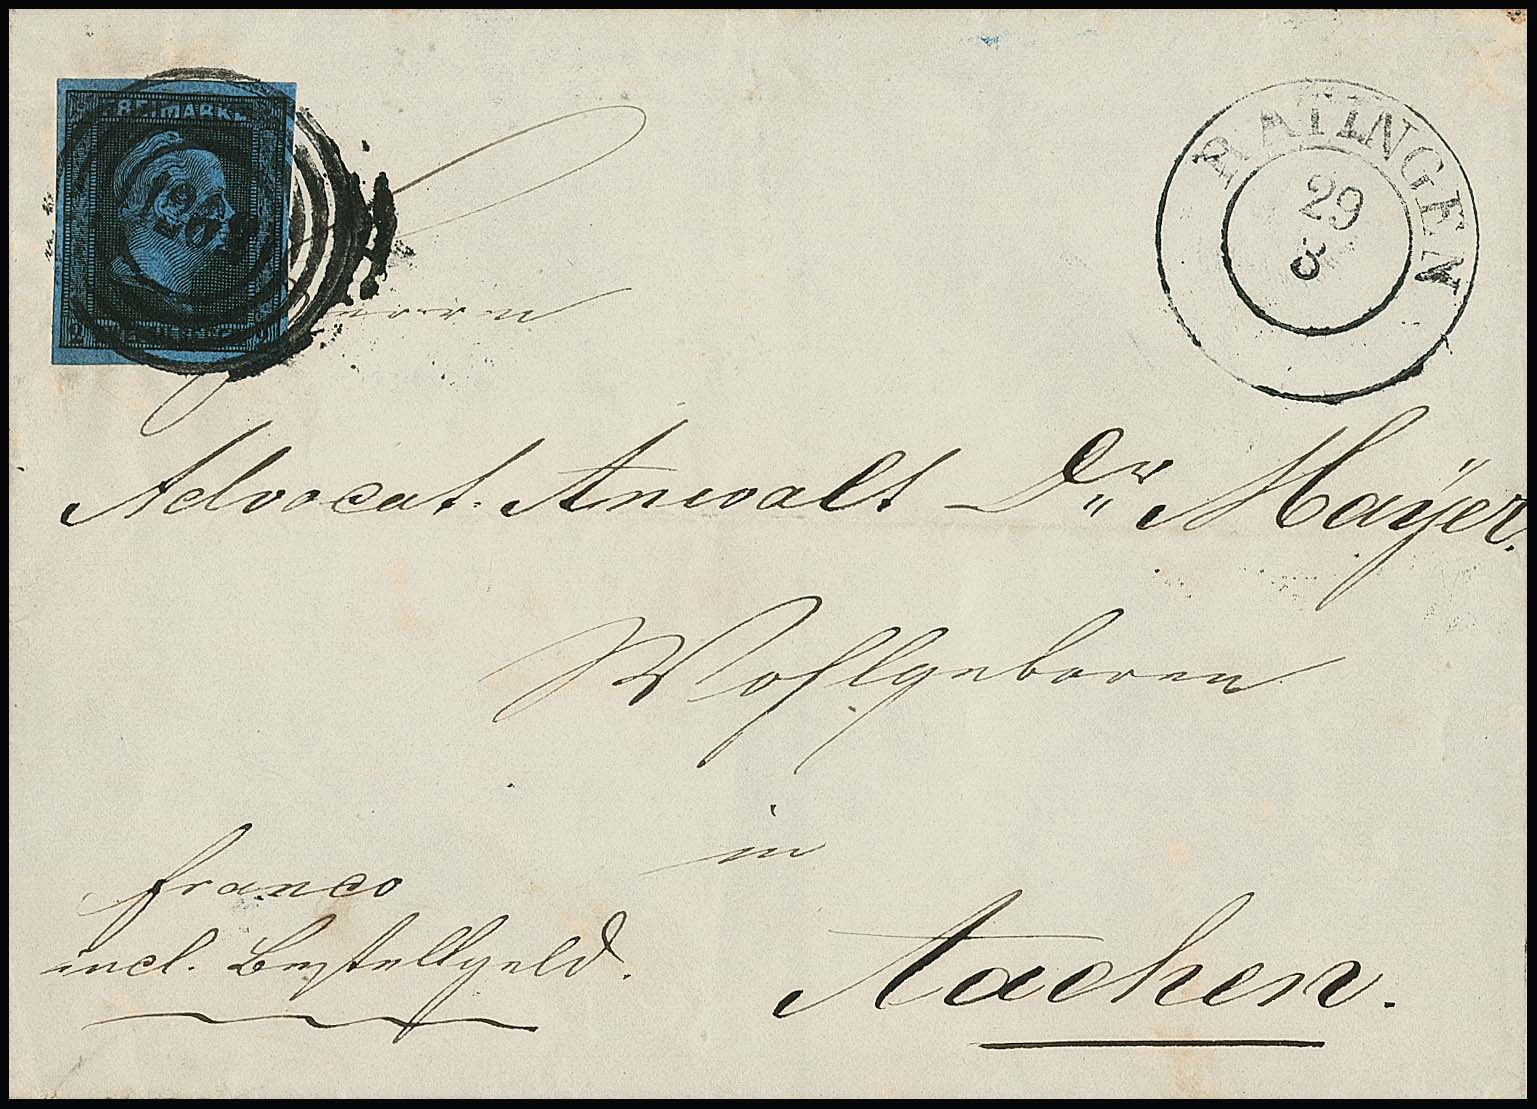 FREIMARKE
RATINGEN
29
8
Herrn
Advocat-Anwalt Dr. Mayer.
Wohlgeboren
in
franco
incl. Bestellgeld.
Aachen.